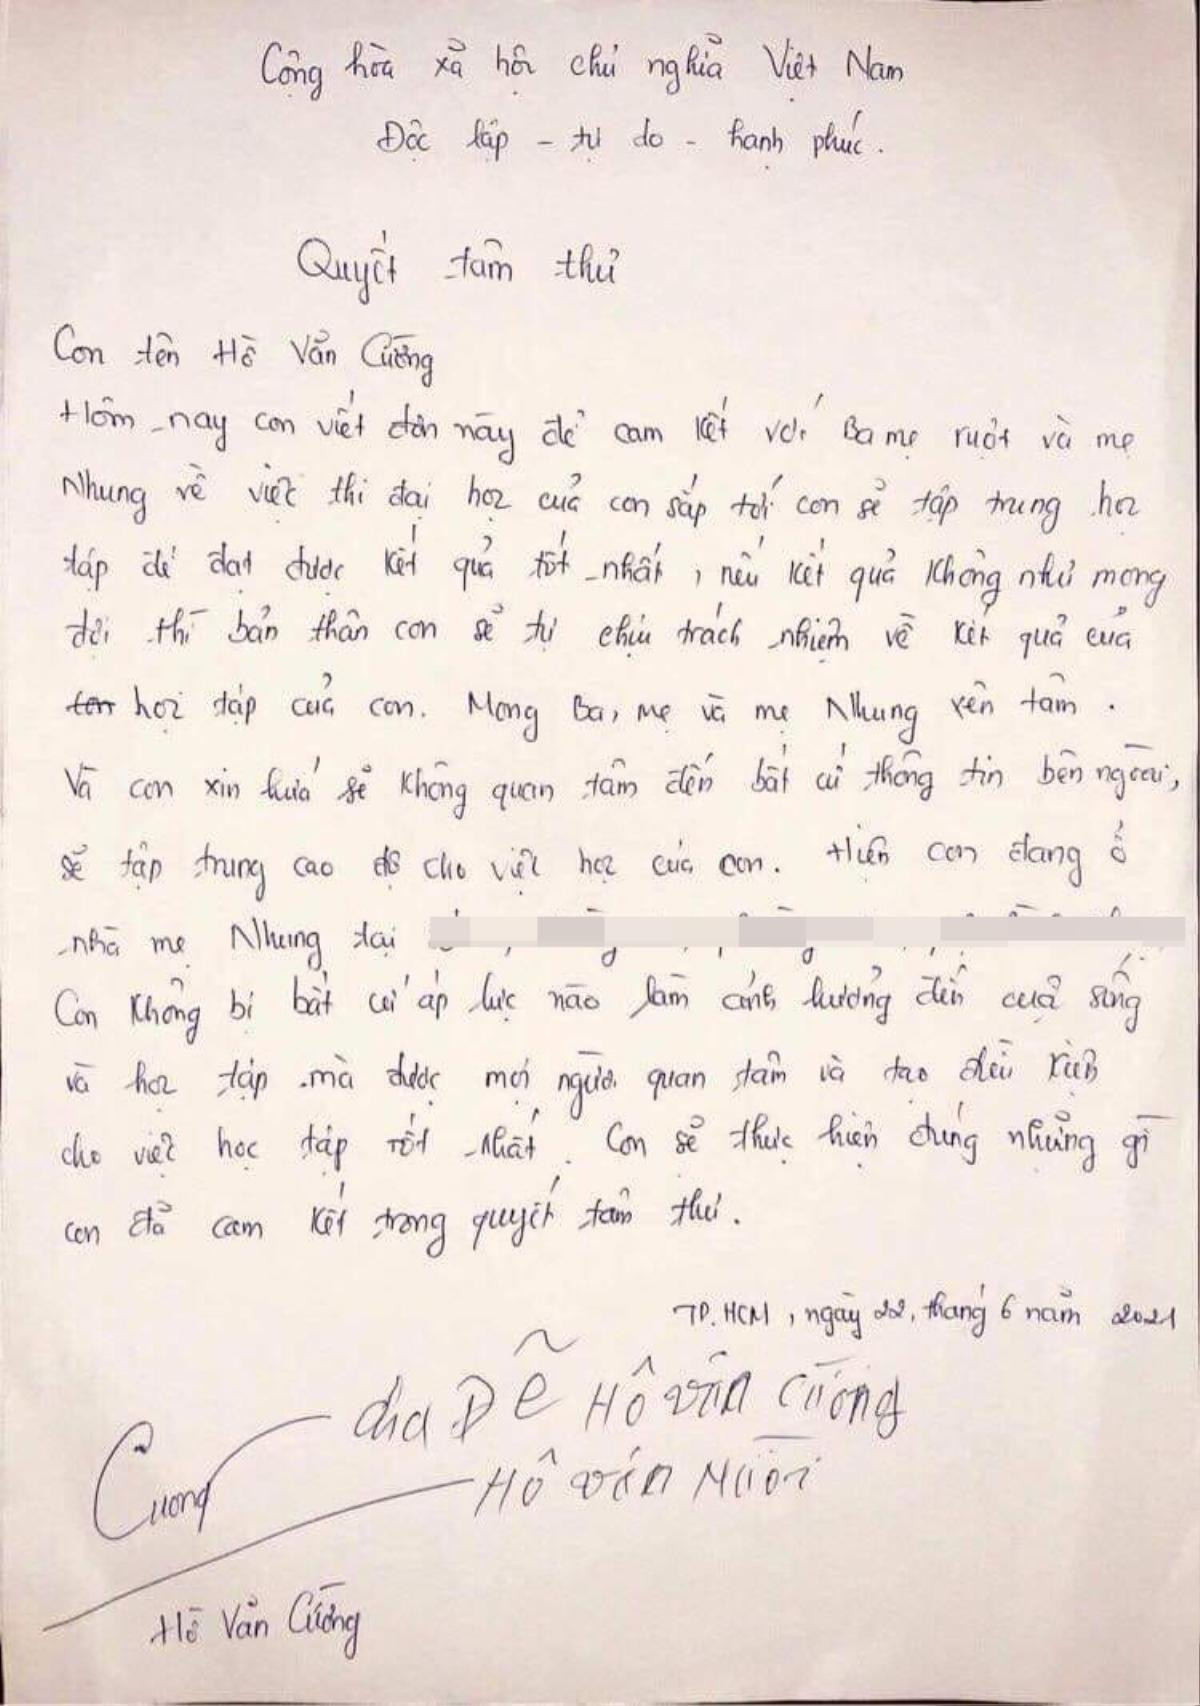 Cộng hòa xả hội chủ nghỉa Việt Nam
Độc lập - tự do - hạnh phúc.
Quyết tâm thư
Con tên Hồ Văn Cường
Hôm nay con viết đơn này để cam kết với Ba mẹ ruột và mẹ
Nhung về việc thi đại học của con sắp tới con sẻ tập trung học
tập để đạt được kết quả tốt nhất, nếu kết quả không như mong
đợi thì bản thân con sẻ tự chịu trách nhiệm về kết quả của
học tập của con. Mong Ba, mẹ và mẹ Nhung yên tâm.
Và con xin hứa sẻ không quan tâm đến bất cứ thông tin bên ngoài,
sẻ tập trung cao độ cho việc học của con. Hiện con đang ở
nhà mẹ Nhung tại
Con không bị bất cứ áp lực nào làm ảnh hưởng đến cuộ sống
và học tập mà được mọi người quan tâm và tạo điều kiện
cho việc học tập tốt nhất. Con sẻ thực hiện đúng những gì
con đả cam kết trong quyết tâm thư.
TP. HCM, ngày 22, tháng 6 năm 2021
cha Đẽ Hồ văn Cường
Cuong
Hồ văn Mười
Hồ Văn Cường